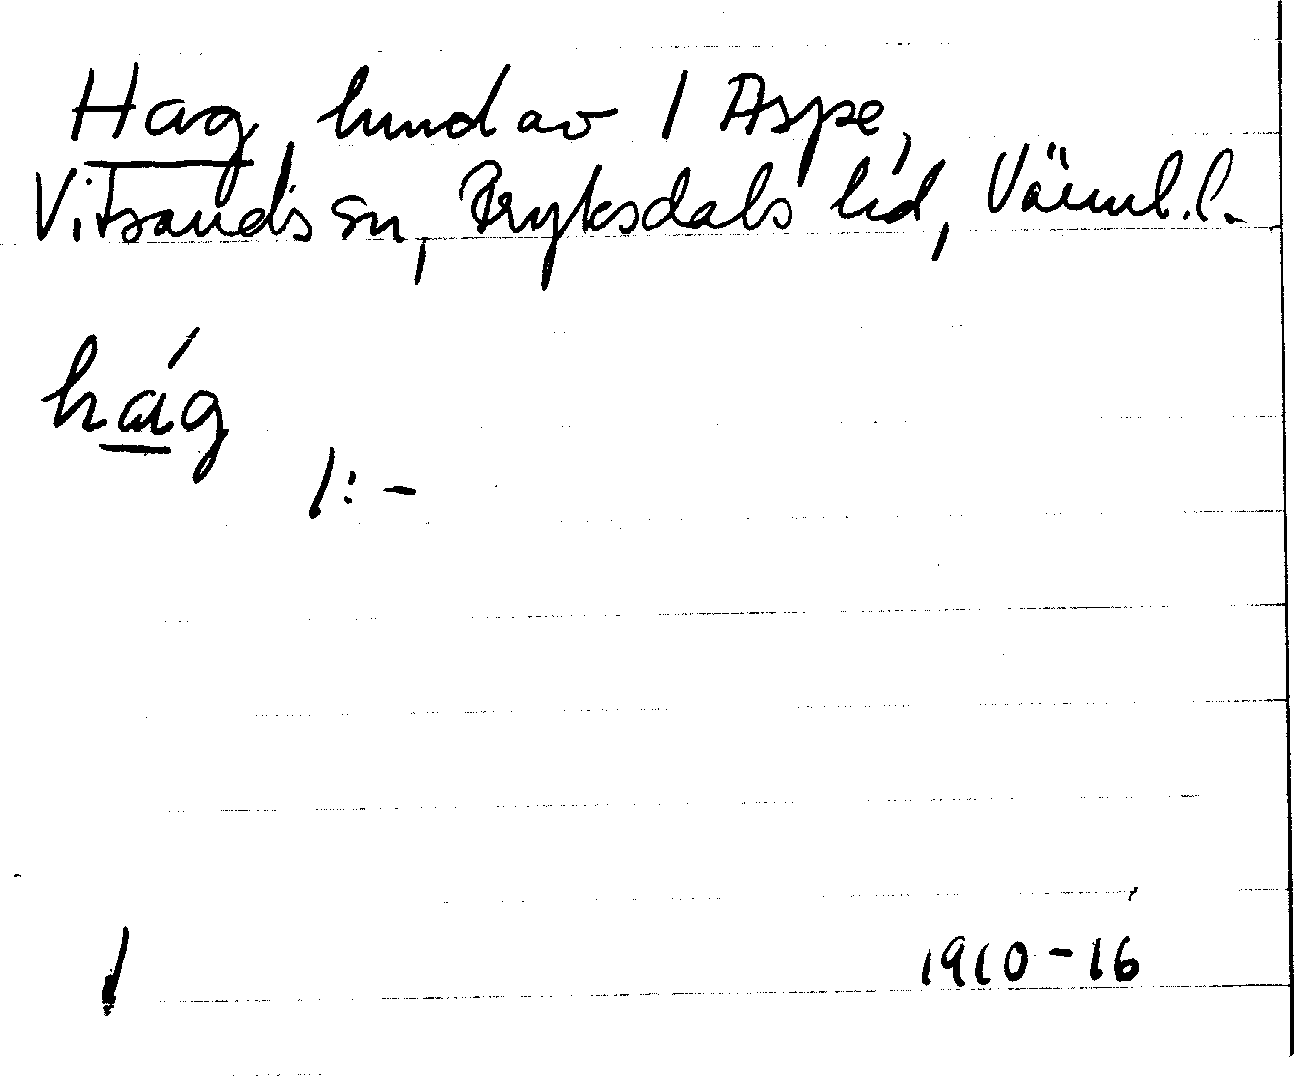 Hag, hmd av 1 Aspe,
Vitsands sn, Fryksdals hd, Värml. l.
hág
1: -
1 1910-16